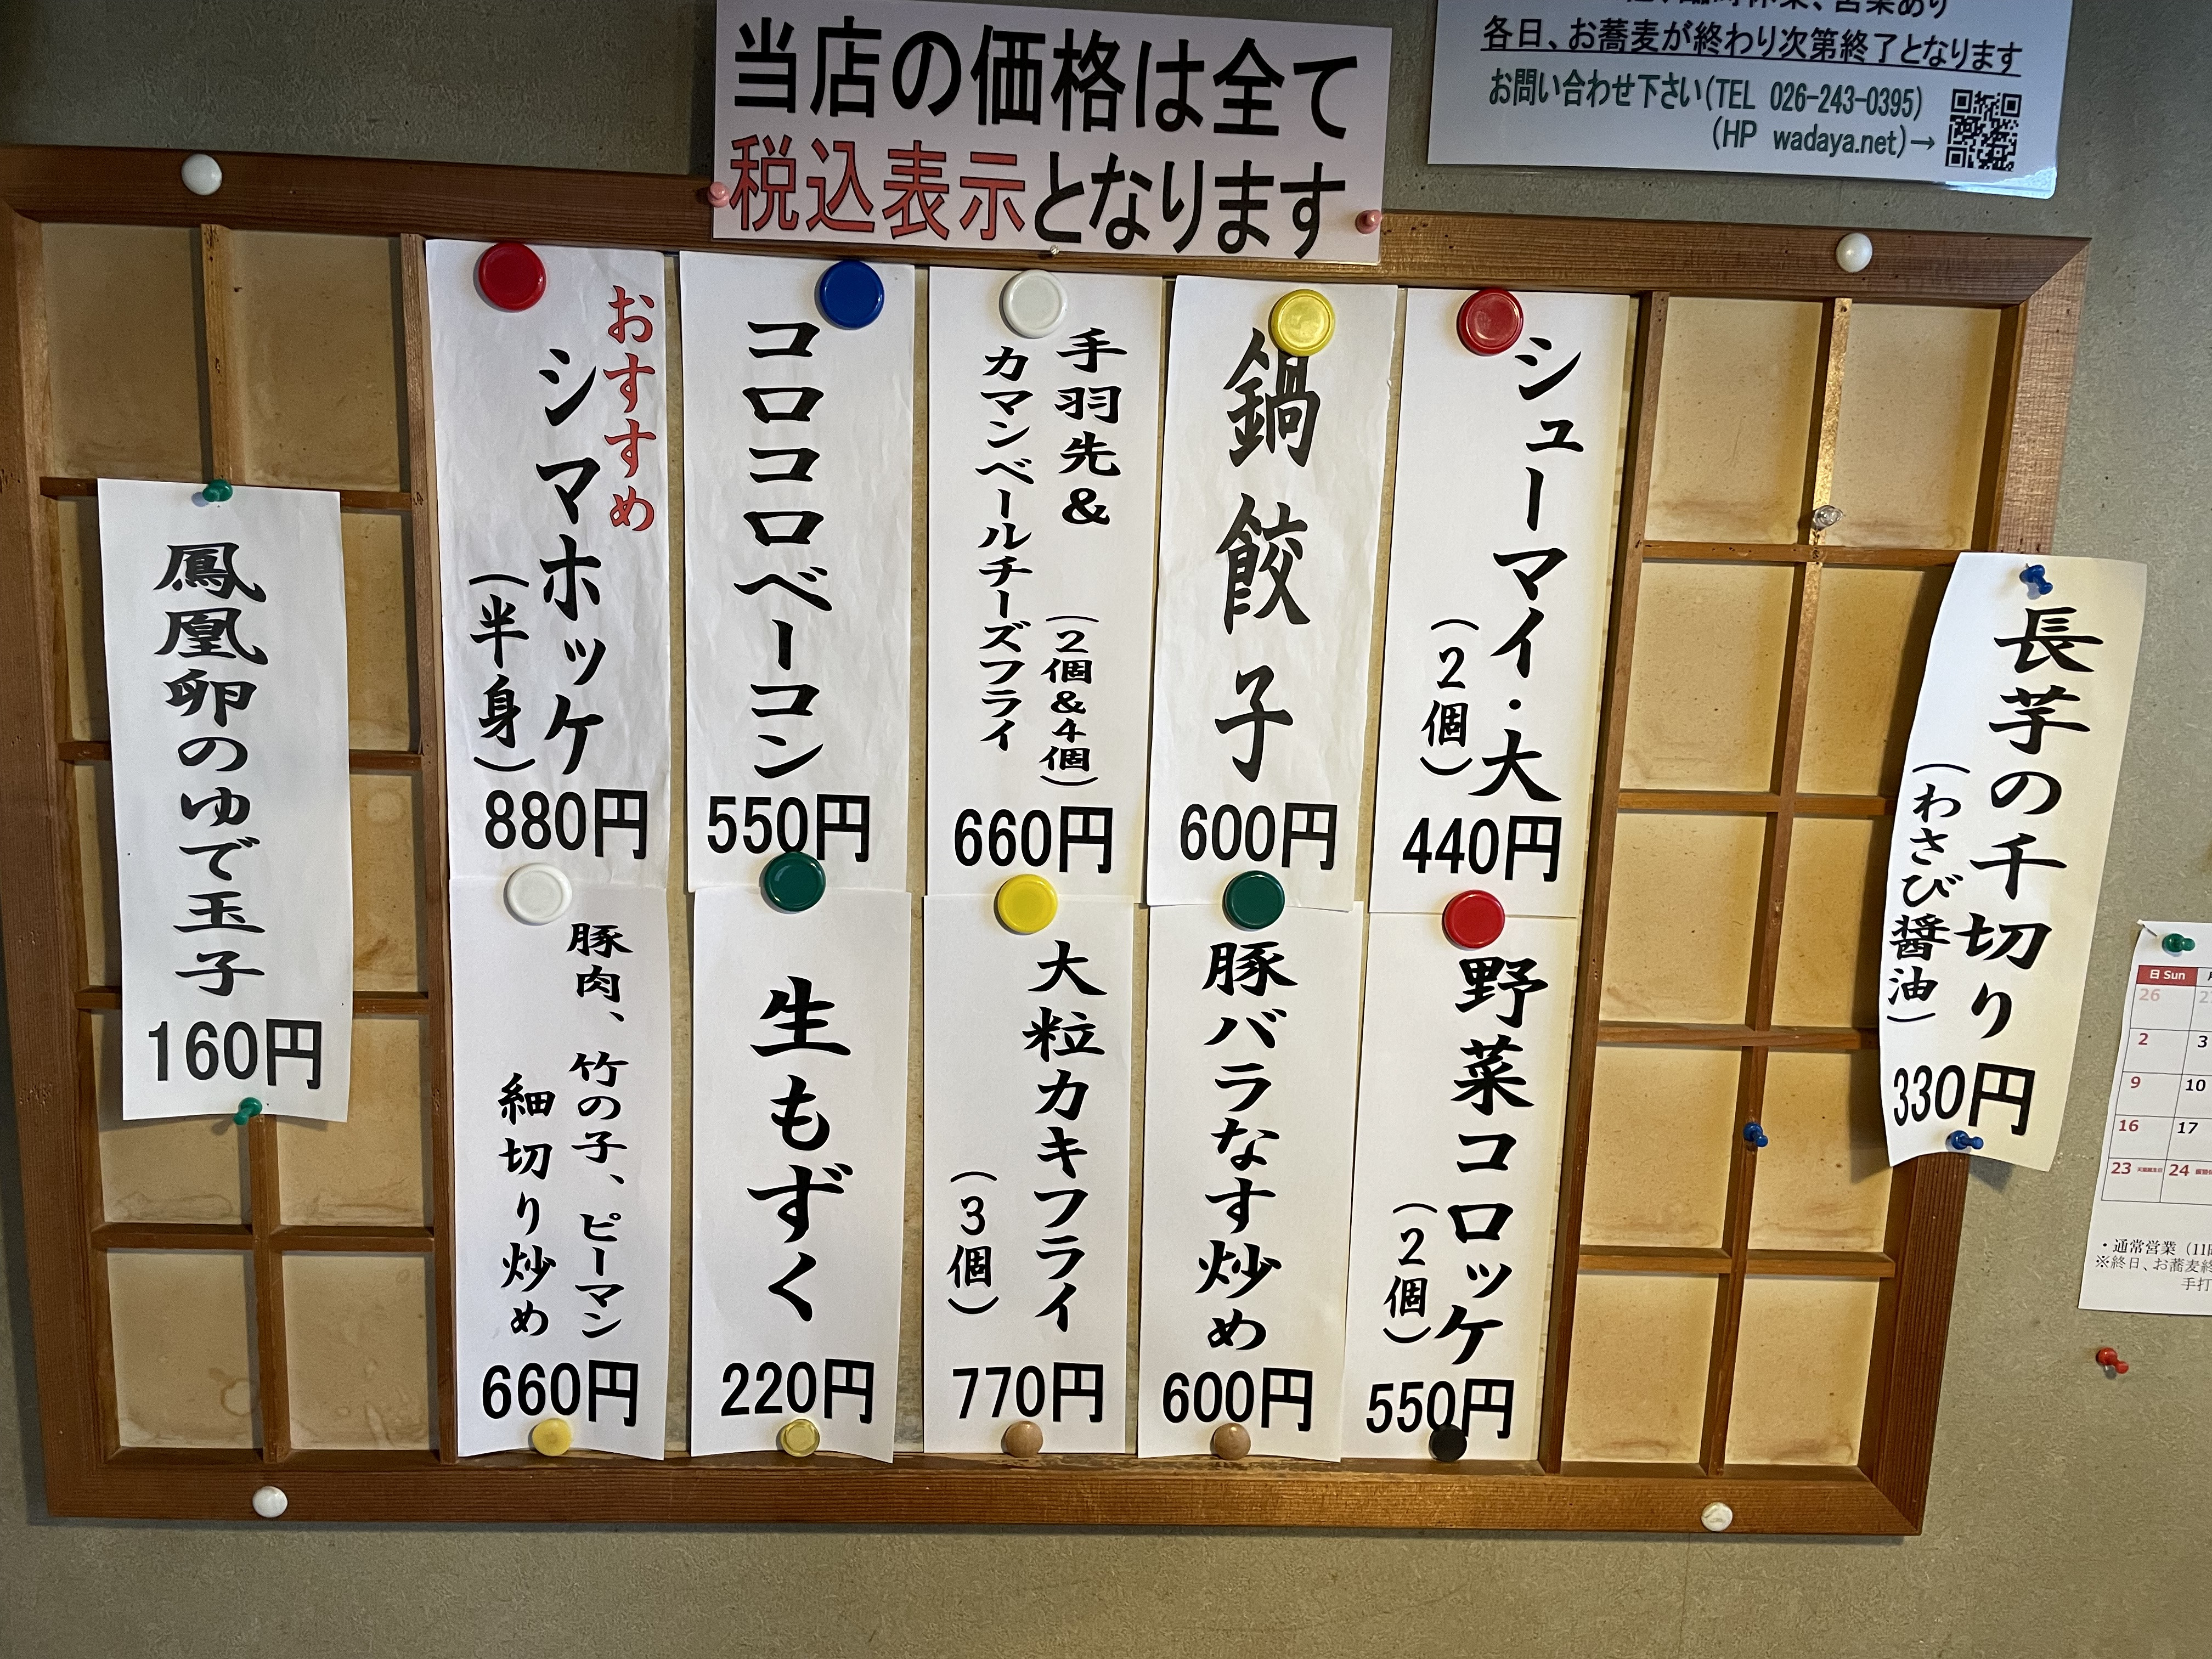 当店の価格は全て
税込表示となります
各日、お蕎麦が終わり次第終了となります
お問い合わせ下さい(TEL 026-243-0395)
(HP wadaya.net)→
長芋の千切り
(わさび醤油)
330円
シューマイ・大
(2個)
440円
鍋餃子
600円
手羽先&
(2個&4個)
カマンベールチーズフライ
660円
コロコロベーコン
550円
おすすめ
シマホッケ
(半身)
880円
鳳凰卵のゆで玉子
160円
野菜コロッケ
(2個)
550円
豚バラなす炒め
600円
大粒カキフライ
(3個)
770円
生もずく
220円
豚肉、竹の子、ピーマン
細切り炒め
660円
日 Sun
26
2 3
9 10
16 17
23 24
・通常営業(11
※終日、お蕎麦終
手打